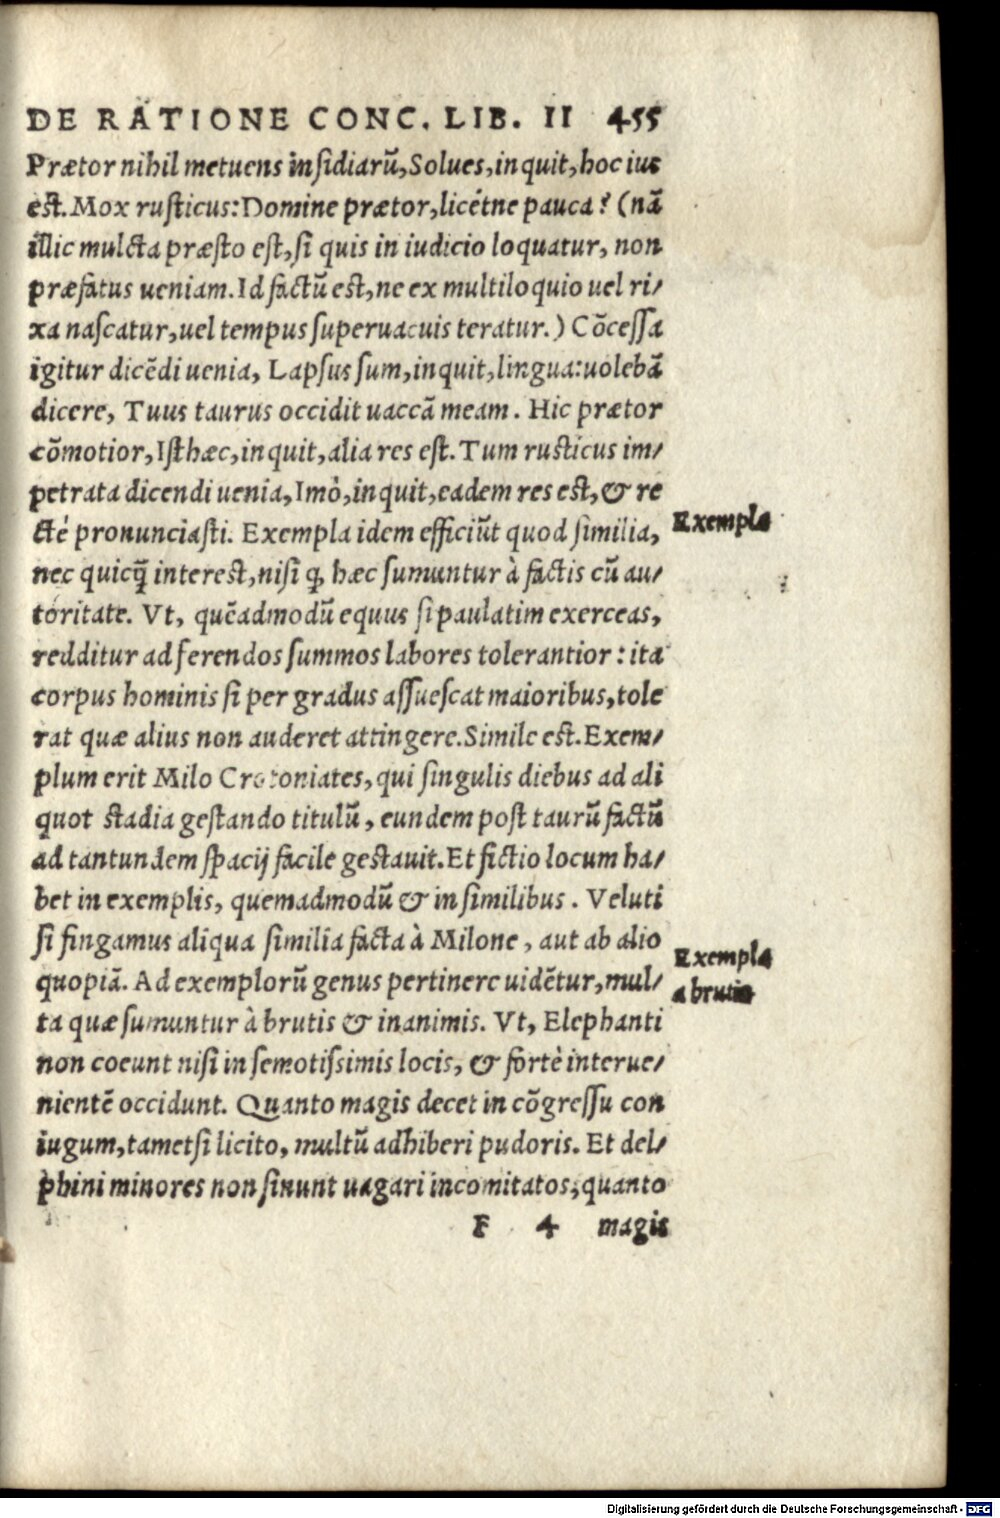 DE RATIONE CONC. LIB. II 455
Prætor nihil metuens insidiarũ, Solues, inquit, hoc ius
est. Mox rusticus: Domine prætor, licétne pauca? (nã
illic mulcta præsto est, si quis in iudicio loquatur, non
præfatus ueniam. Id factũ est, ne ex multiloquio uel ri/
xa nascatur, uel tempus superuacuis teratur.) Cõcessa
igitur dicẽdi uenia, Lapsus sum, inquit, lingua: uolebã
dicere, Tuus taurus occidit uaccã meam. Hic prætor
cõmotior, Isthæc, inquit, alia res est. Tum rusticus im/
petrata dicendi uenia, Imò, inquit, eadem res est, & re
ctè pronunciasti. Exempla idem efficiũt quod similia,
Exempla
nec quicq̃ interest, nisi ꝙ hæc sumuntur à factis cũ au/
toritate. Vt, quẽadmodũ equus si paulatim exerceas,
redditur ad ferendos summos labores tolerantior: ita
corpus hominis si per gradus assuescat maioribus, tole
rat quæ alius non auderet attingere. Simile est. Exem/
plum erit Milo Crotoniates, qui singulis diebus ad ali
quot stadia gestando titulũ, eundem post taurũ factũ
ad tantundem spacij facile gestauit. Et fictio locum ha/
bet in exemplis, quemadmodũ & in similibus. Veluti
si fingamus aliqua similia facta à Milone, aut ab alio
quopiã. Ad exemplorũ genus pertinere uidẽtur, mul/
Exempla
a brutis
ta quæ sumuntur à brutis & inanimis. Vt, Elephanti
non coeunt nisi in semotissimis locis, & fortè interue/
nientẽ occidunt. Quanto magis decet in cõgressu con
iugum, tametsi licito, multũ adhiberi pudoris. Et del/
phini minores non sinunt uagari incomitatos, quanto
F 4 magis
Digitalisierung gefördert durch die Deutsche Forschungsgemeinschaft - DFG